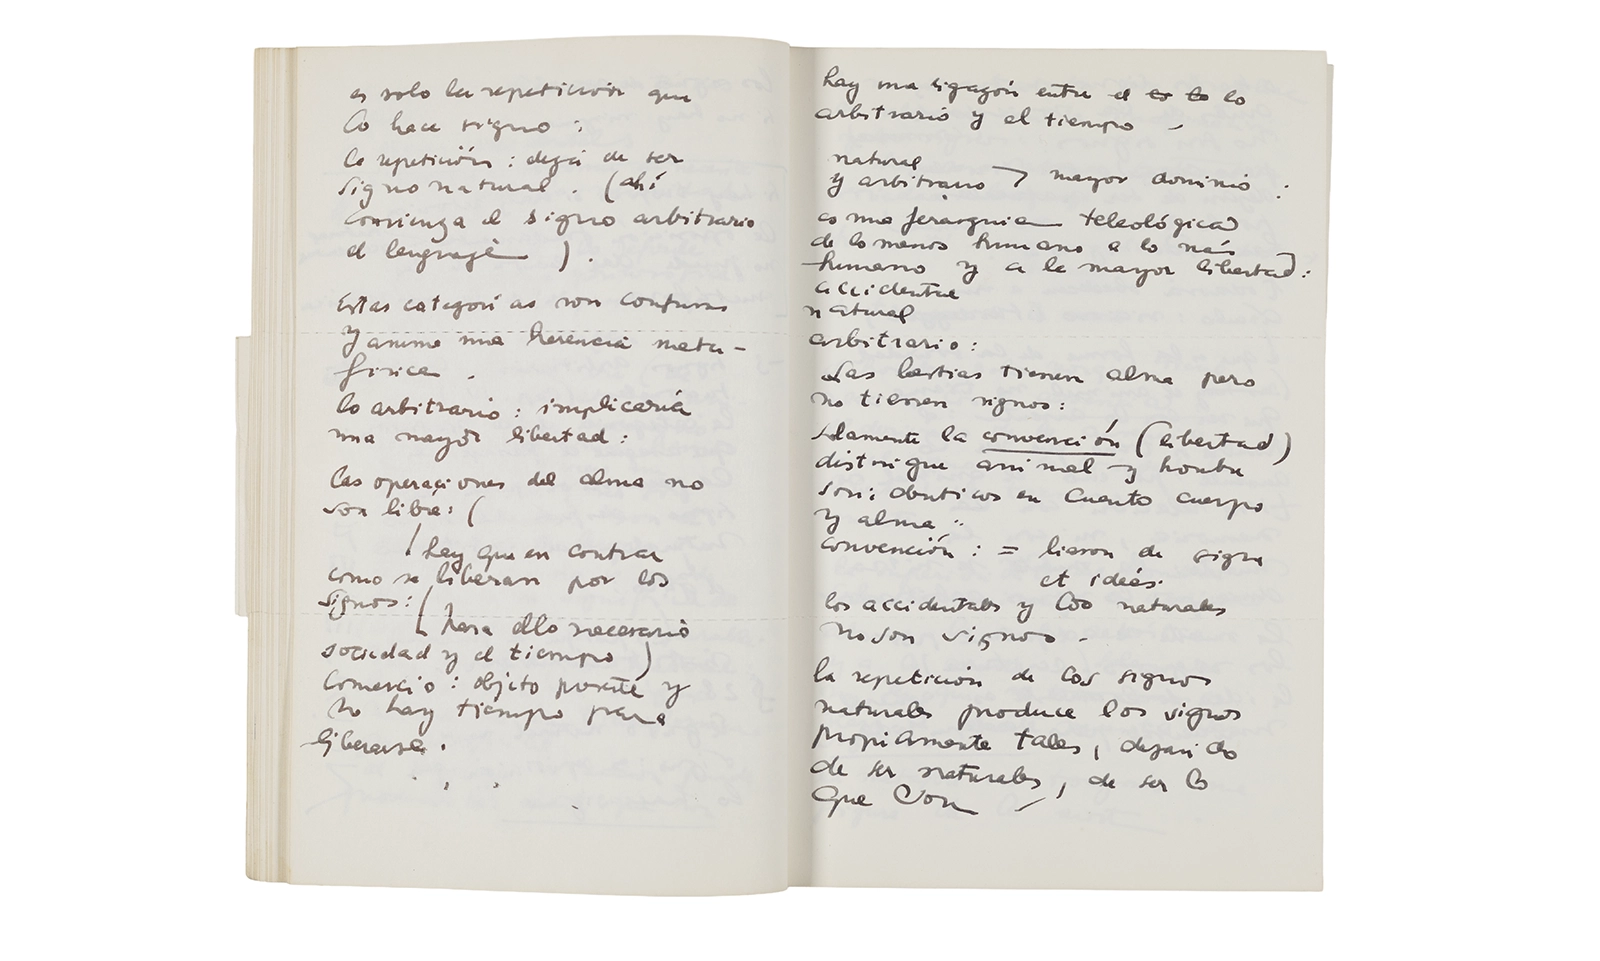 es solo la repetición que
lo hace signo :
la repetición : deja de ser
signo natural . (ahí
comienza el signo arbitrario
el lenguaje ) .
Estas categorías son confusas
y asume una herencia meta-
física .
lo arbitrario : implicaría
una mayor libertad :
las operaciones del alma no
son libre : (
( hay que encontrar
como se liberan por los
signos : (
para ello necesario
sociedad y el tiempo )
Comercio : objeto y
no hay tiempo para
liberarse .
hay una ligazón entre el es lo lo
arbitrario y el tiempo -
natural
y arbitrario > mayor dominio :
es una jerarquia teleológica
de lo menos humano a lo más
humano y a la mayor libertad :
accidental
natural
arbitrario :
Las bestias tienen alma pero
no tienen signos :
solamente la convención (libertad)
distingue animal y hombre
son identicos en cuanto cuerpo
y alma :
convención : = liason de signe
et idées .
los accidentales y los naturales
no son signos -
la repetición de los signos
naturales produce los signos
propiamente tales, dejando
de ser naturales, de ser lo
que son